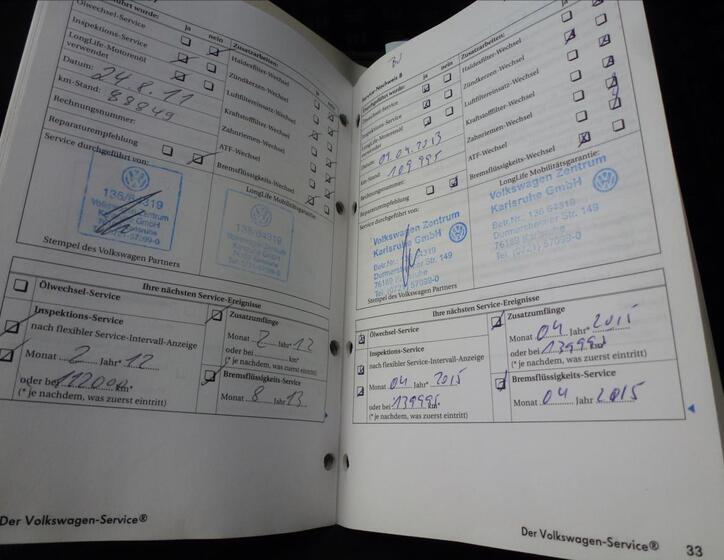 Ölwechsel-Service
Inspektions-Service
LongLife-Motorenöl
verwendet
Datum:
24.8.11
km-Stand: 88849
Rechnungsnummer:
Reparaturempfehlung
Service durchgeführt von:
ja nein
Zusatzarbeiten:
Haidesfilter-Wechsel
Zündkerzen-Wechsel
Luftfiltereinsatz-Wechsel
Kraftstoffilter-Wechsel
Zahnriemen-Wechsel
ATF-Wechsel
Bremsflüssigkeits-Wechsel
LongLife Mobilitätsgarantie:
136/64319
Volkswagen Zentrum
Karlsruhe GmbH
76189 Karlsruhe
Stempel des Volkswagen Partners
Ihre nächsten Service-Ereignisse
Ölwechsel-Service
Inspektions-Service
nach flexibler Service-Intervall-Anzeige
Monat 2 Jahr* 12
oder bei km*
(* je nachdem, was zuerst eintritt)
Zusatzumfänge
Monat 2 Jahr 12
oder bei km*
(* je nachdem, was zuerst eintritt)
Bremsflüssigkeits-Service
Monat 8 Jahr 13
Der Volkswagen-Service®
Service Nachweis 8
Durchgeführt wurde:
ja nein
Ölwechsel-Service
Inspektions-Service
LongLife-Motorenöl
verwendet
Datum: 09.04.2013
km-Stand: 109995
Rechnungsnummer:
Reparaturempfehlung
Service durchgeführt von:
Zusatzarbeiten:
ja nein
Haidesfilter-Wechsel
Zündkerzen-Wechsel
Luftfiltereinsatz-Wechsel
Kraftstoffilter-Wechsel
Zahnriemen-Wechsel
ATF-Wechsel
Bremsflüssigkeits-Wechsel
LongLife Mobilitätsgarantie:
Volkswagen Zentrum
Karlsruhe GmbH
Durmersheimer Str. 149
76189 Karlsruhe
Volkswagen Zentrum
Karlsruhe GmbH
Betr.Nr.: 136 64319
Durmersheimer Str. 149
76189 Karlsruhe
Tel. (0721) 57099-0
Stempel des Volkswagen Partners
Ihre nächsten Service-Ereignisse
Ölwechsel-Service
Inspektions-Service
nach flexibler Service-Intervall-Anzeige
Monat 04 Jahr* 2015
oder bei 139995 km*
(* je nachdem, was zuerst eintritt)
Zusatzumfänge
Monat 04 Jahr* 2015
oder bei 13999
(* je nachdem, was zuerst eintritt)
Bremsflüssigkeits-Service
Monat 04 Jahr 2015
Der Volkswagen-Service®
33